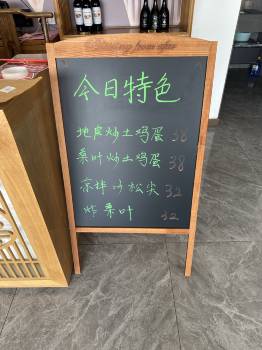 今日特色
地皮炒土鸡蛋 38
桑叶炒土鸡蛋 38
凉拌沙松尖 32
炸桑叶 32